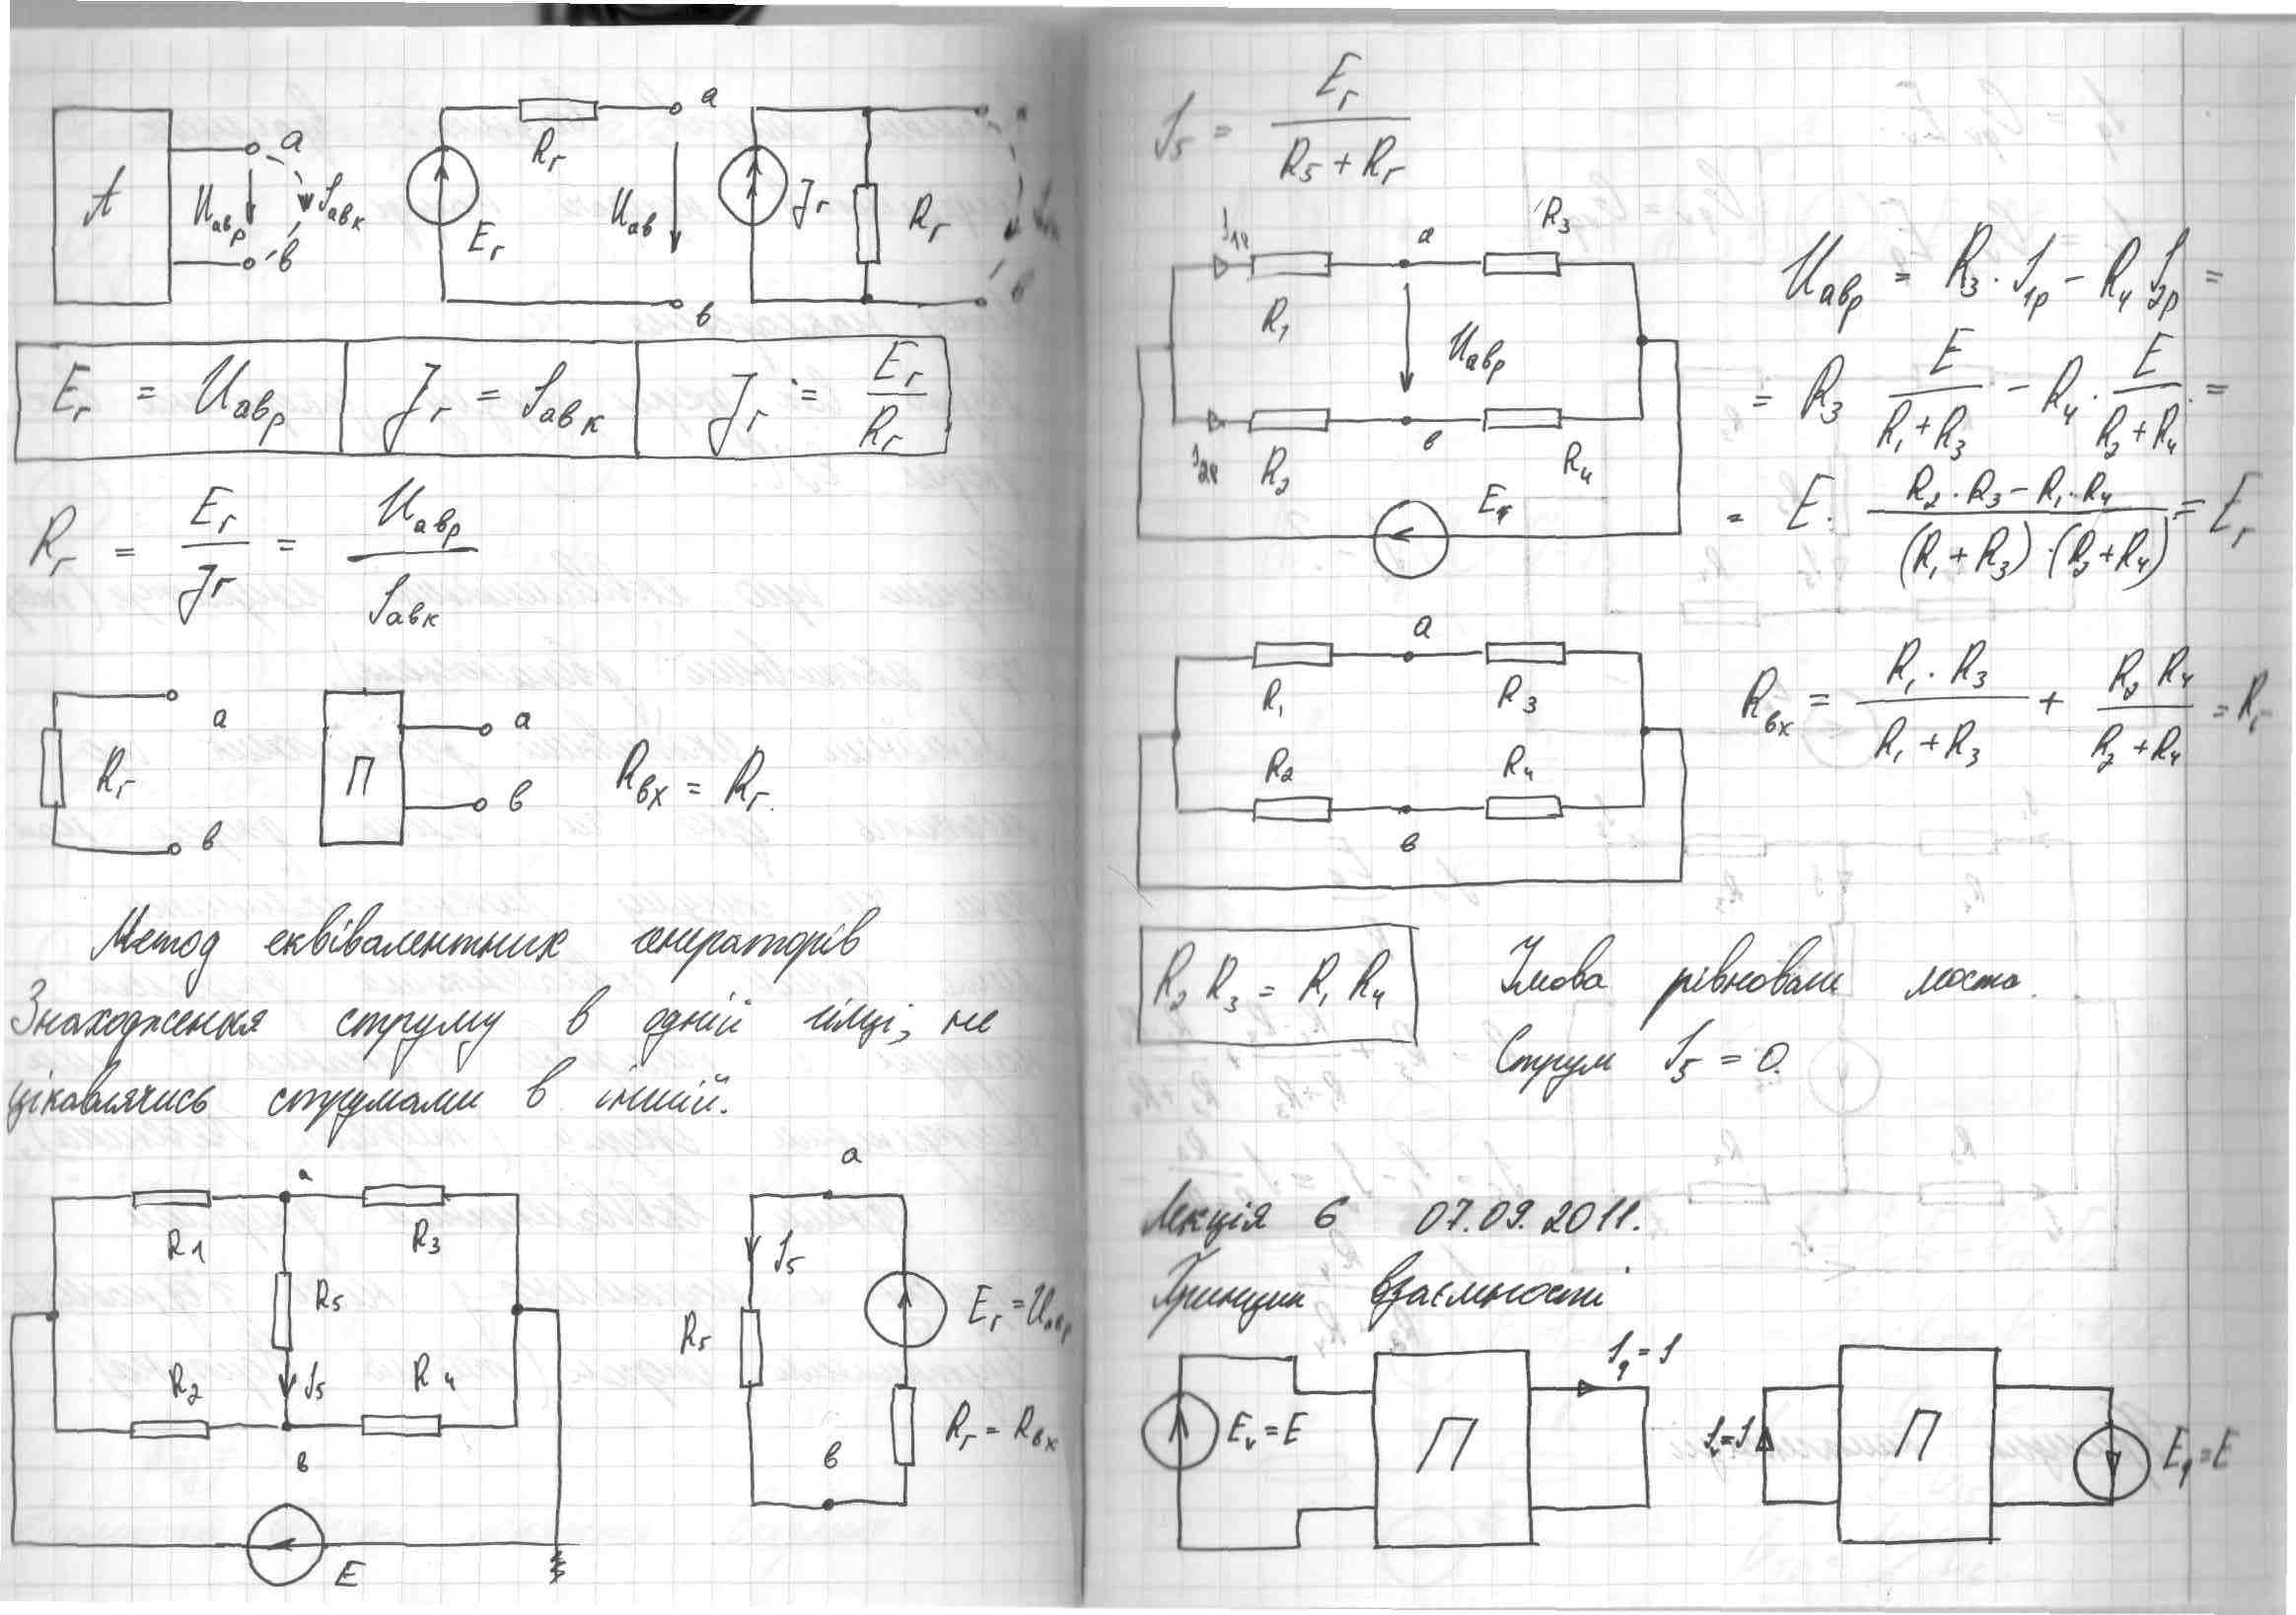 A
a
U_авр
I_авк
в
R_г
a
E_г
U_ав
в
J_г
R_г
E_г = U_авр
J_г = I_авк
J_г = E_г / R_г
R_г = E_г / J_г = U_авр / I_авк
a
R_г
в
П
a
в
R_вх = R_г.
Метод еквівалентних генераторів
Знаходження струму в одній гілці, не
цікавлячись струмами в іншій.
a
R1
R3
R5
R2
I5
R4
в
E
a
I5
R5
E_г = U_авр
R_г = R_вх
в
I5 = E_г / (R5 + R_г)
I_1р
a
R3
R1
U_авр
I_2р
R2
в
R4
U_авр = R3 · I_1р − R4 I_2р =
= R3 E / (R1 + R3) − R4 · E / (R2 + R4) =
= E · (R2 · R3 − R1 · R4) / ((R1 + R3) · (R2 + R4)) = E_г
a
R1
R3
R2
R4
в
R_вх = R1 · R3 / (R1 + R3) + R2 R4 / (R2 + R4) = R_г
R2 R3 = R1 R4
Умова рівноваги моста.
Струм I5 = 0.
Лекція 6 07.09.2011.
Принцип взаємності
E_v = E
П
I_q = I
I_v = I
П
E_q = E